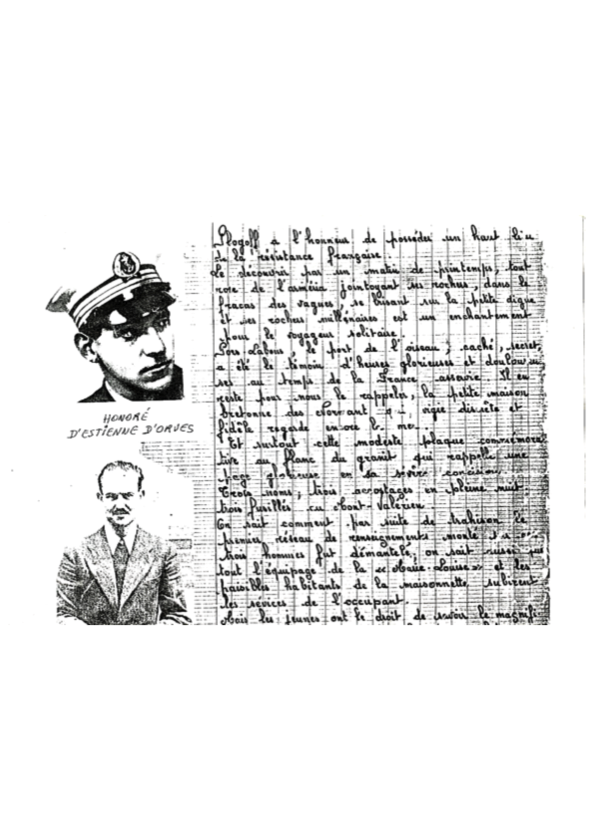 HONORÉ
D'ESTIENNE D'ORVES
Plogoff a l'honneur de posséder un haut lieu
de la résistance française
Le découvrir par un matin de printemps, tout
rose de l'arméria jointoyant ses rochers, dans le
fracas des vagues, se brisant sur la petite digue
et ses rochers millénaires est un enchantement
pour le voyageur solitaire.
Pors Labous, le port de l'oiseau, caché, secret,
a été le témoin d'heures glorieuses et douloureu
ses au temps de la France asservie. Il en
reste pour nous le rappeler, la petite maison
bretonne des discrète et
fidèle regarde encore la mer
Et surtout cette modeste plaque commémora
tive au flanc du granit qui rappelle une
page glorieuse en sa sobre concision.
Trois noms, trois accostages en pleine nuit,
trois fusillés au Mont-Valérien.
On sait comment par suite de trahison le
premier réseau de renseignements monté
trois hommes fut démantelé, on sait aussi que
tout l'équipage de la "Marie-Louise" et les
paisibles habitants de la maisonnette subirent
les sévices de l'occupant.
Mais les jeunes ont le droit de savoir le magnifi-